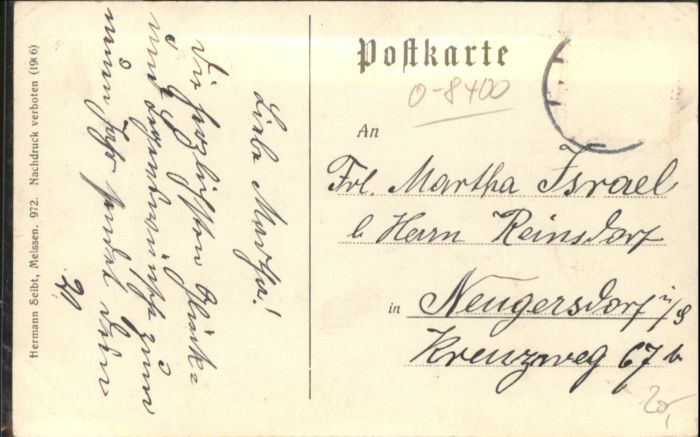 Hermann Seibt, Meissen. 972. Nachdruck verboten (1916)
Liebe Martha!
Die herzlichsten Glück-
und Segenswünsche zum
neuen Jahr sendet Dein
Postkarte
0-8400
An
Frl. Martha Israel
b Herrn Reinsdorf
in Neugersdorf i/S
Kreuzweg 67 b
20,